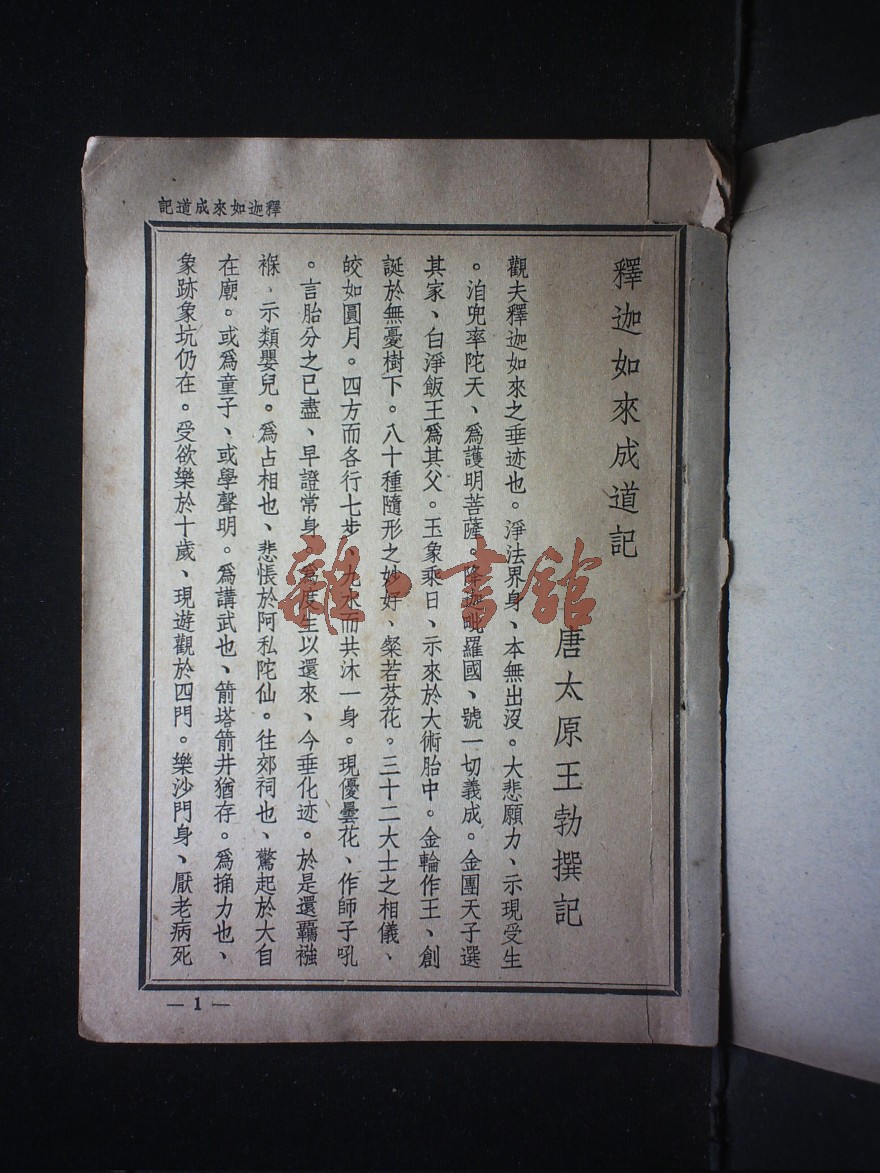 釋迦如來成道記
釋迦如來成道記
唐太原王勃撰記
觀夫釋迦如來之垂迹也。淨法界身、本無出沒。大悲願力、示現受生
。洎兜率陀天、爲護明菩薩。降迦毗羅國、號一切義成。金團天子選
其家、白淨飯王爲其父。玉象乘日、示來於大術胎中。金輪作王、創
誕於無憂樹下。八十種隨形之妙好、粲若芬花。三十二大士之相儀、
皎如圓月。四方而各行七步、九水而共沐一身。現優曇花、作師子吼
。言胎分之已盡、早證常身。爲度生以還來、今垂化迹。於是還羈襁
褓、示類嬰兒。爲占相也、悲悵於阿私陀仙。往郊祠也、驚起於大自
在廟。或爲童子、或學聲明。爲講武也、箭塔箭井猶存。爲捔力也、
象跡象坑仍在。受欲樂於十歲、現遊觀於四門。樂沙門身、厭老病死
— 1 —
雜·書館